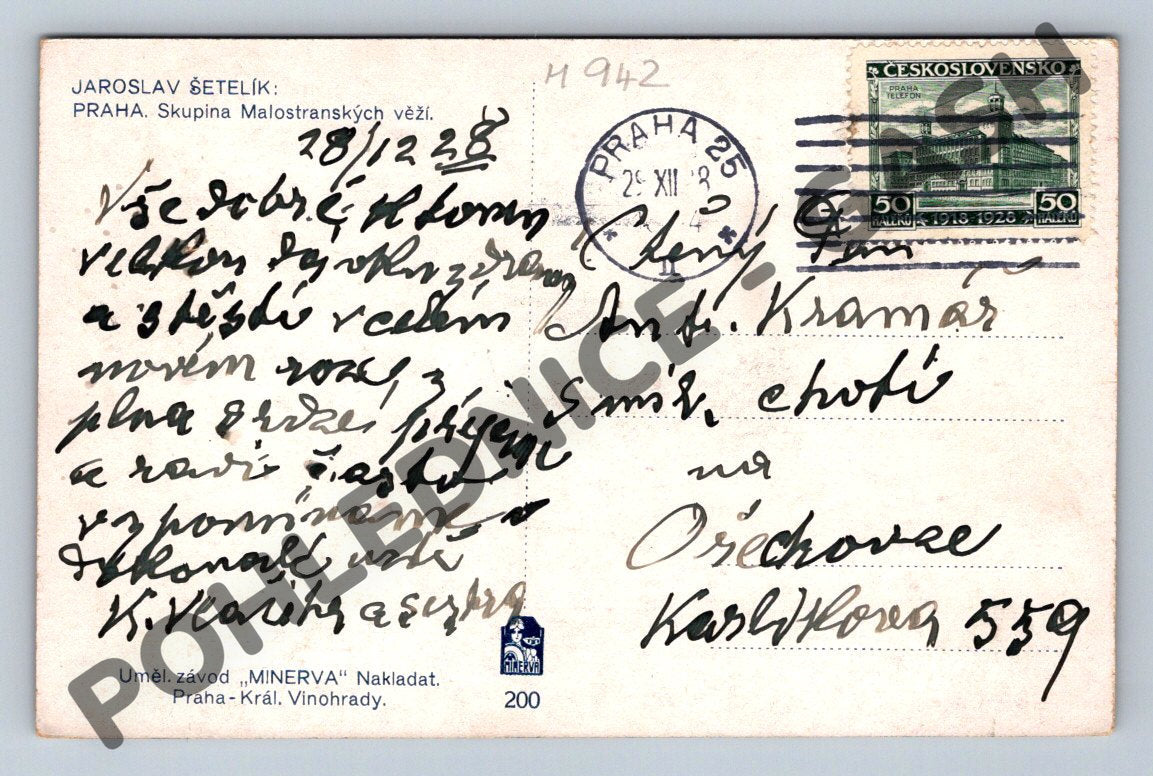 JAROSLAV ŠETELÍK:
PRAHA. Skupina Malostranských věží.
M 942
28/12 28
Vše dobré,
velkou zdraví
a štěstí v celém
novém roce, z
plna srdce přejeme
a rádi často
vzpomínáme
K. a sestra
Uměl. závod „MINERVA" Nakladat.
Praha-Král. Vinohrady.
MINERVA
200
PRAHA 25
29 XII 8
II
ČESKOSLOVENSKO
PRAHA
TELEFON
50 50
HALÉŘŮ 1918-1928 HALÉŘŮ
Ctený Pan
Ant. Kramář
choti
na
Ořechovce
Karlíkova 559
POHLEDNICE - SASH